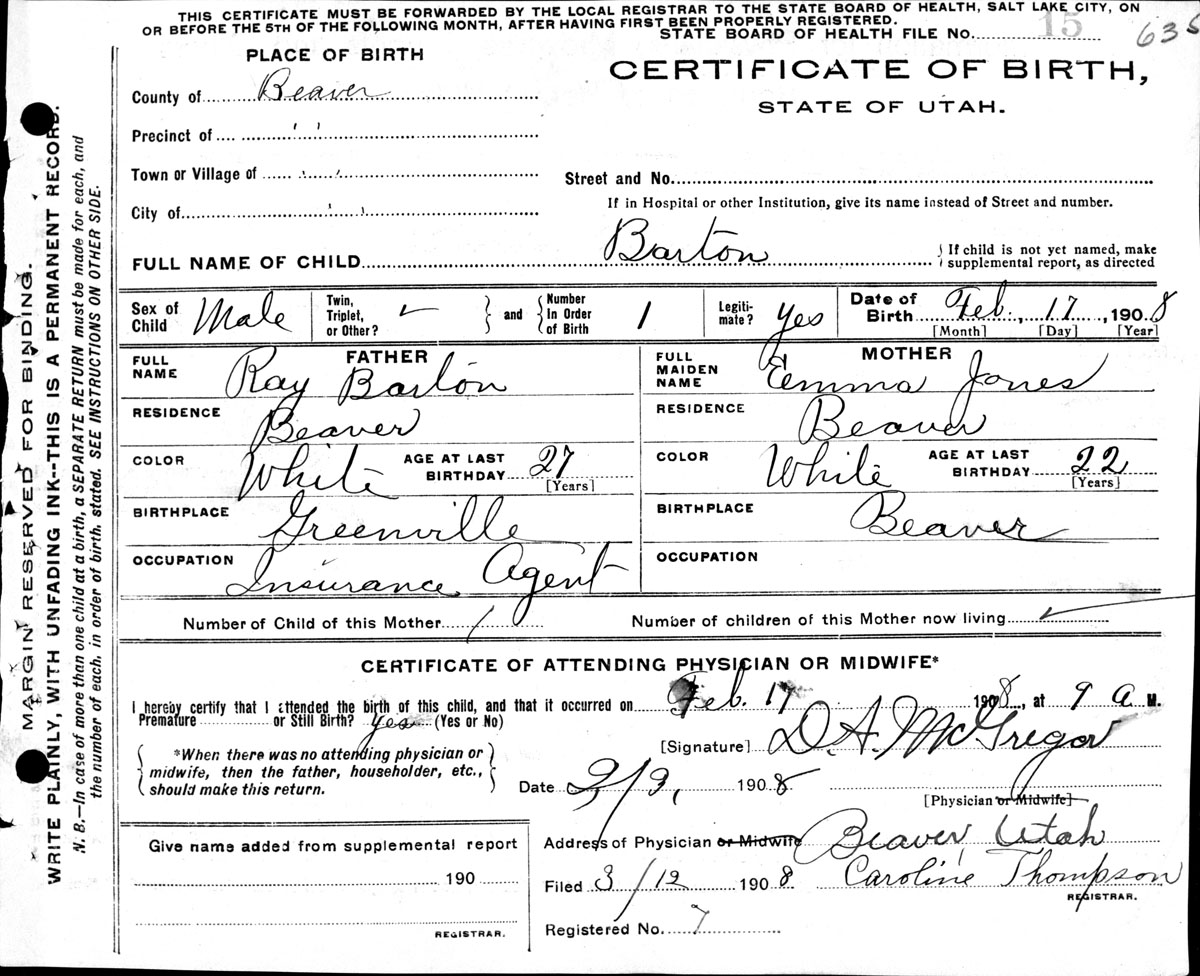 THIS CERTIFICATE MUST BE FORWARDED BY THE LOCAL REGISTRAR TO THE STATE BOARD OF HEALTH, SALT LAKE CITY, ON
OR BEFORE THE 5TH OF THE FOLLOWING MONTH, AFTER HAVING FIRST BEEN PROPERLY REGISTERED.
STATE BOARD OF HEALTH FILE No. 15 635
PLACE OF BIRTH
CERTIFICATE OF BIRTH,
STATE OF UTAH.
County of Beaver
Precinct of " "
Town or Village of " "
Street and No.
City of " "
If in Hospital or other Institution, give its name instead of Street and number.
FULL NAME OF CHILD Barton { If child is not yet named, make
supplemental report, as directed
Sex of Child Male Twin, Triplet, or Other? – } and { Number In Order of Birth 1 Legiti-mate? Yes Date of Birth Feb. 17, 1908
[Month] [Day] [Year]
FATHER MOTHER
FULL NAME Ray Barton FULL MAIDEN NAME Emma Jones
RESIDENCE Beaver RESIDENCE Beaver
COLOR White AGE AT LAST BIRTHDAY 27 [Years] COLOR White AGE AT LAST BIRTHDAY 22 [Years]
BIRTHPLACE Greenville BIRTHPLACE Beaver
OCCUPATION Insurance Agent OCCUPATION
Number of Child of this Mother 1 Number of children of this Mother now living
CERTIFICATE OF ATTENDING PHYSICIAN OR MIDWIFE*
I hereby certify that I attended the birth of this child, and that it occurred on Feb. 17 1908, at 9 a M.
Premature or Still Birth? Yes (Yes or No)
*When there was no attending physician or
midwife, then the father, householder, etc.,
should make this return.
[Signature] D. A. McGregor
Date 3/9, 1908
[Physician or Midwife]
Address of Physician or Midwife Beaver, Utah
Give name added from supplemental report
190
REGISTRAR.
Filed 3/12 1908 Caroline Thompson
REGISTRAR.
Registered No. 7
MARGIN RESERVED FOR BINDING.
WRITE PLAINLY, WITH UNFADING INK--THIS IS A PERMANENT RECORD.
N. B.—In case of more than one child at a birth, a SEPARATE RETURN must be made for each, and
the number of each, in order of birth, stated. SEE INSTRUCTIONS ON OTHER SIDE.